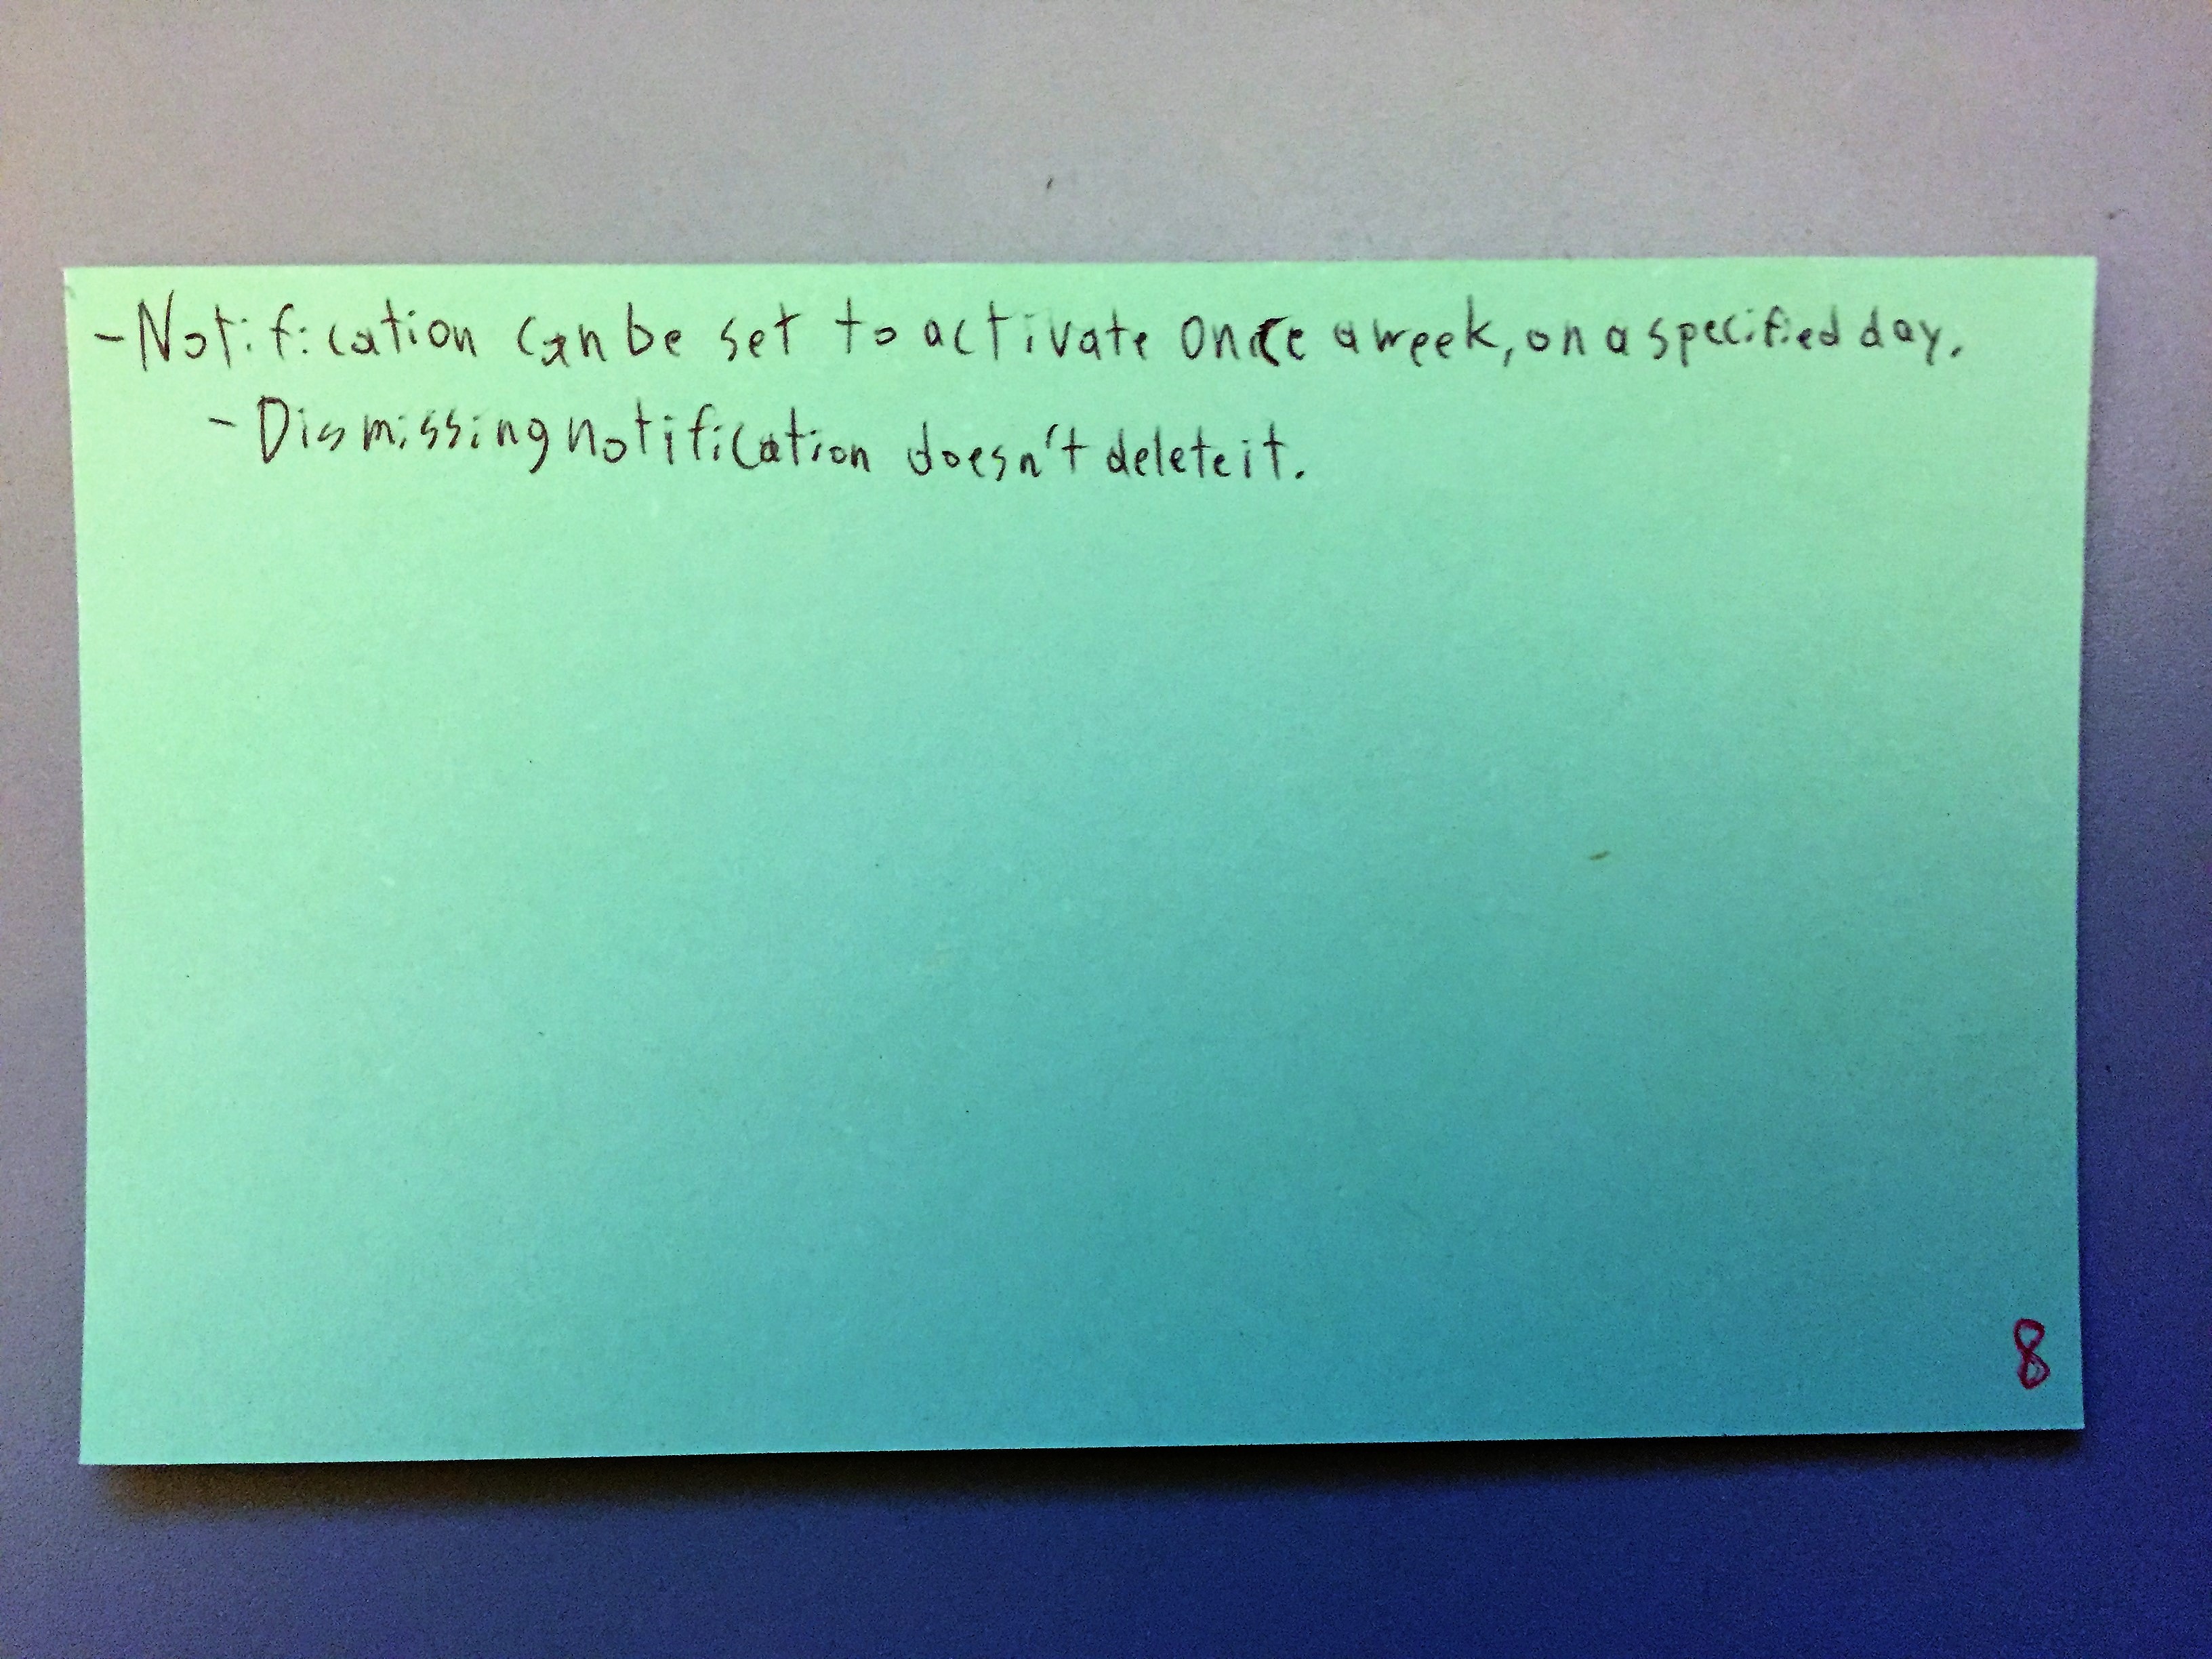 - Notification can be set to activate once a week, on a specified day.
- Dismissing notification doesn't delete it.
8